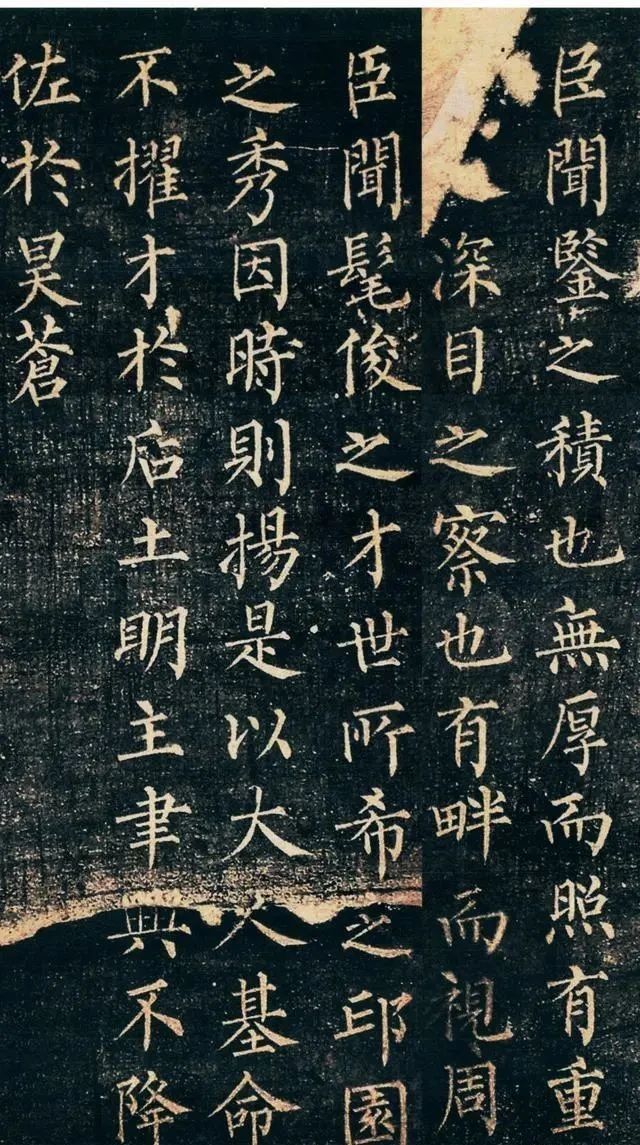 臣聞鑒之積也無厚而照有重
深目之察也有畔而視周
臣聞髦俊之才世所希之邱園
之秀因時則揚是以大人基命
不擢才於后土明主聿興不降
佐於昊蒼